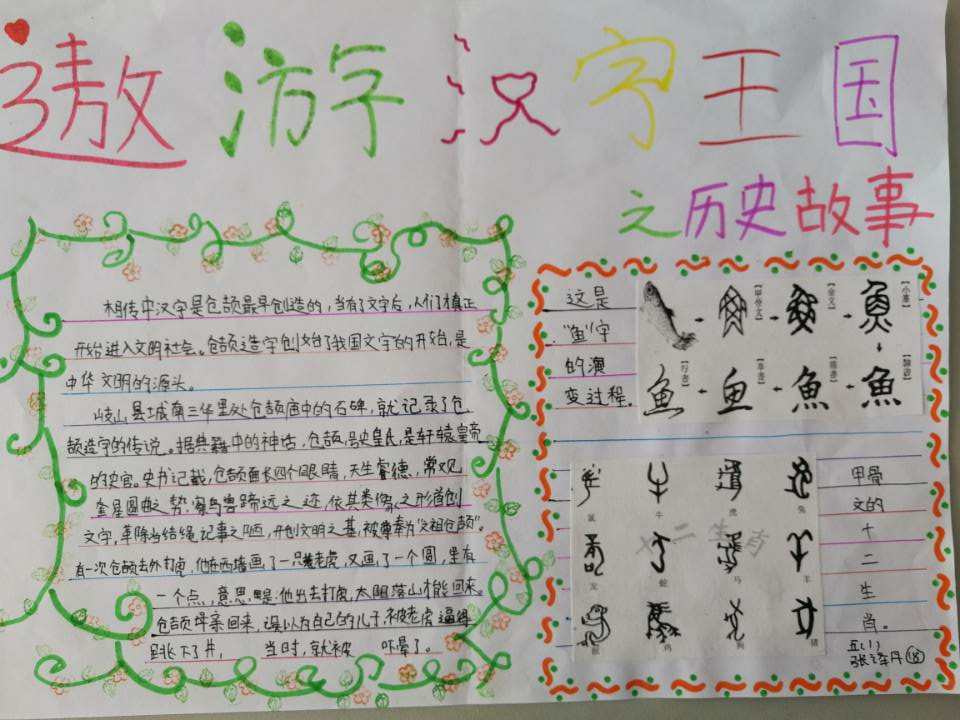 遨游字汉字王国
之历史故事
相传中汉字是仓颉最早创造的,当有了文字后,人们才真正
开始进入文明社会。仓颉造字创始了我国文字的开始,是
中华文明的源头。
岐山县城南三华里处仓颉庙中的石碑,就记录了仓
颉造字的传说。据典籍中的神话,仓颉,号史皇氏,是轩辕皇帝
的史官。史书记载,仓颉面长四个眼睛,天生睿德,常观
奎星圆曲之势,察鸟兽蹄远之迹,依其类像之形首创
文字,革除当结绳记事之陋,开创文明之基,被尊奉为“文祖仓颉”。
有一次仓颉去外打鱼,他在西墙画了一只老虎,又画了一个圆,里有
一个点,意思是:他出去打鱼,太阳落山才能回来。
仓颉母亲回来,误以为自己的儿子被老虎逼得
跳下了片, 当时,就被 吓晕了。
这是
“鱼”字
的演
变过程。
【甲骨文】
【金文】
【小篆】
【隶书】
魚
【楷书】
魚
【草书】
【行书】
鱼
甲骨
文的
十
二
生
肖。
鼠 牛 虎 兔
龙 蛇 马 羊
猴 鸡 狗 猪
十二生肖
五(1)
张泽丹 18